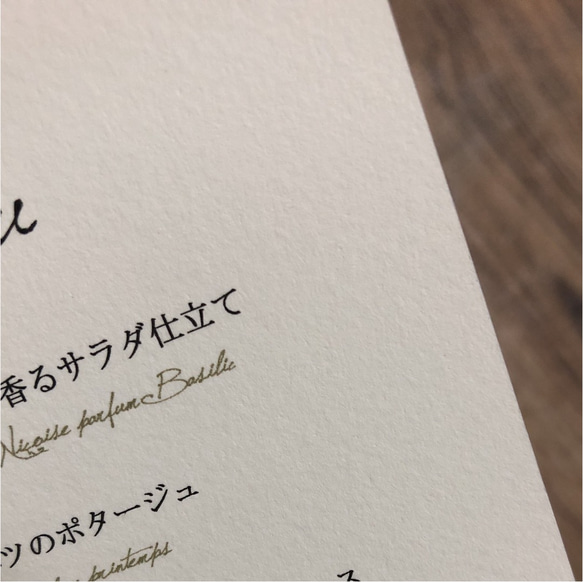 u
香るサラダ仕立て
Niçoise parfum Basilic
ツのポタージュ
printemps
ス